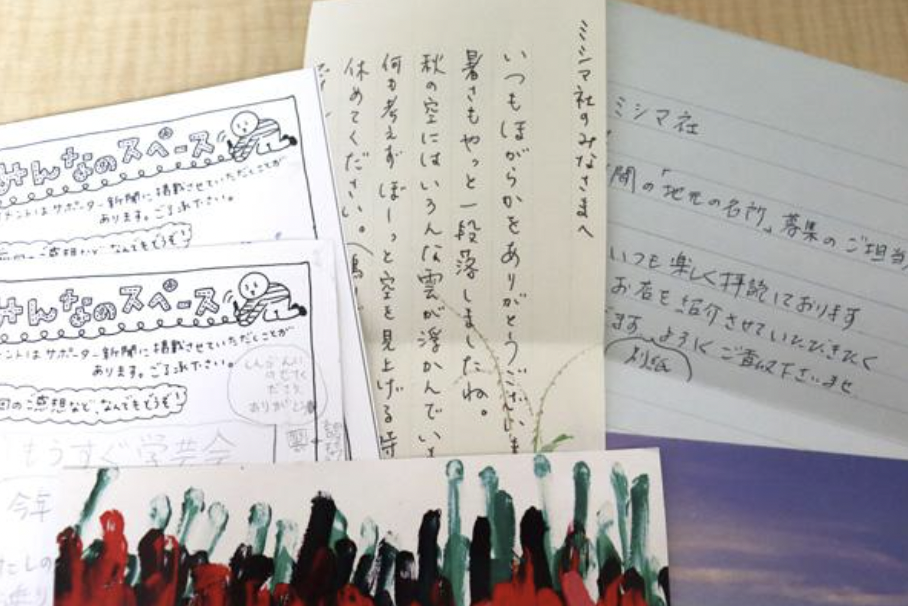 みんなのスペース
メントはサポーター新聞に掲載させていただくことが
あります。ご了承ください。
みんなのスペース
メントはサポーター新聞に掲載させていただくことが
あります。ご了承ください。
回のご感想など、なんでもどうぞ!
しんぶんに
のせてく
ださり
ありがとう
もうすぐ学芸会
今年
たしの
ミシマ社のみなさまへ
いつもほがらかをありがとうございま
暑さもやっと一段落しましたね。
秋の空にはいろんな雲が浮かんでい
何も考えずぼーっと空を見上げる時
休めてください。
ミシマ社
聞の「地元の名所」募集のご担当
いつも楽しく拝読しております
お店を紹介させていただきたく
ます。よろしくご査収下さいませ
別紙